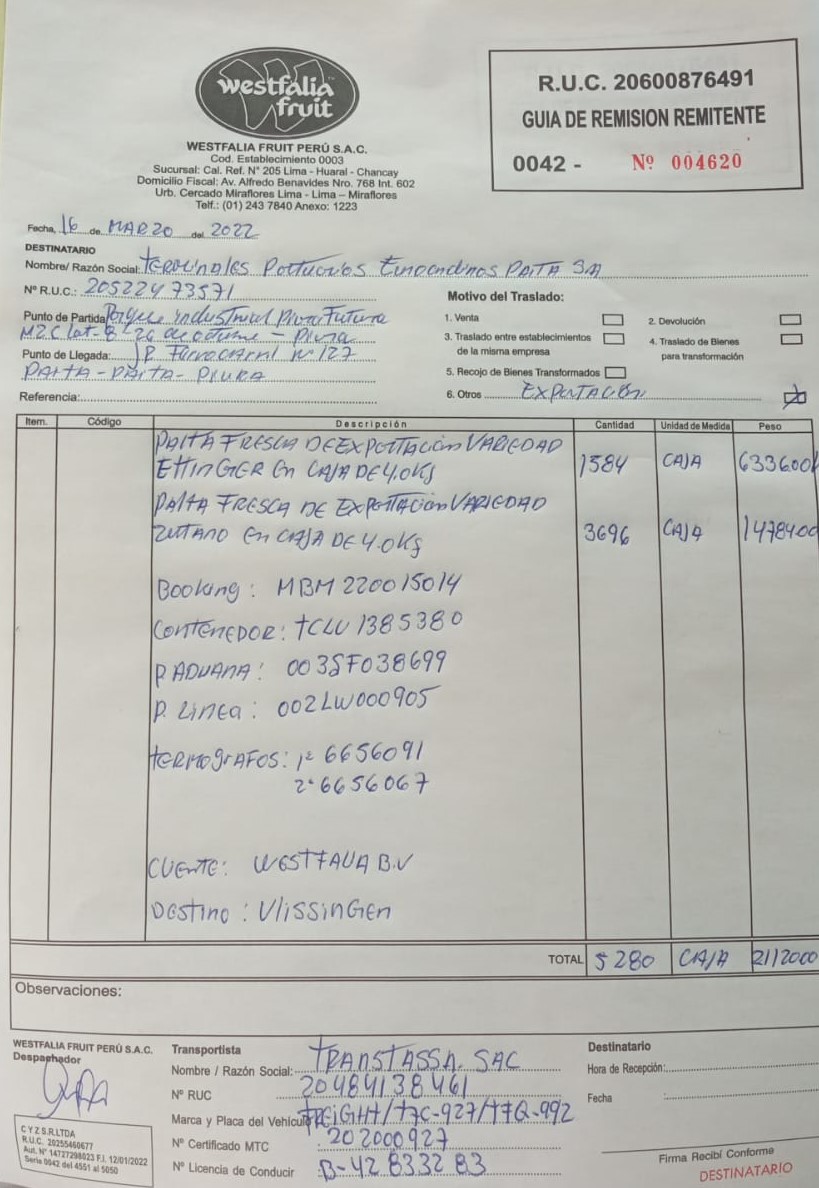 westfalia
fruit
WESTFALIA FRUIT PERÚ S.A.C.
Cod. Establecimiento 0003
Sucursal: Cal. Ref. N° 205 Lima - Huaral - Chancay
Domicilio Fiscal: Av. Alfredo Benavides Nro. 768 Int. 602
Urb. Cercado Miraflores Lima - Lima – Miraflores
Telf.: (01) 243 7840 Anexo: 1223
R.U.C. 20600876491
GUIA DE REMISION REMITENTE
0042 - Nº 004620
Fecha, 16 de MARZO del 2022
DESTINATARIO
Nombre/ Razón Social: TERMINALES Portuarios Euroandinos PAITA SA
Nº R.U.C.: 20522473571
Punto de Partida: Parque industrial Piura Futura
MZC Lot-8 - 26 de octubre - Piura
Punto de Llegada: JR. Ferrocarril Nº 127
PAITA - PAITA - PIURA
Referencia:
Motivo del Traslado:
1. Venta
2. Devolución
3. Traslado entre establecimientos
de la misma empresa
4. Traslado de Bienes
para transformación
5. Recojo de Bienes Transformados
6. Otros EXPORTACIÓN
Item. Código Descripción Cantidad Unidad de Medida Peso
PALTA FRESCA DE EXPORTACIÓN VARIEDAD
ETTINGER EN CAJA DE 4.0KG 1584 CAJA 6336.00
PALTA FRESCA DE EXPORTACIÓN VARIEDAD
ZUTANO EN CAJA DE 4.0KG 3696 CAJA 14784.00
Booking: MBM 220015014
CONTENEDOR: TCLU 1385380
P. ADUANA: 003SF038699
P. Linea: 002LW000905
TERMOGRAFOS: 1º 6656091
2º 6656067
CLIENTE: WESTFALIA B.V
Destino: Vlissingen
TOTAL 5280 CAJA 21120.00
Observaciones:
WESTFALIA FRUIT PERÚ S.A.C.
Despachador
Transportista
Nombre / Razón Social: TRANSTASSA. SAC
Nº RUC 20484138461
Marca y Placa del Vehículo FREIGHT/T7C-927/T7Q-992
Nº Certificado MTC 202000927
Nº Licencia de Conducir B-42833283
Destinatario
Hora de Recepción:
Fecha :
Firma Recibí Conforme
DESTINATARIO
C Y Z S.R.LTDA
R.U.C. 20255460677
Aut. N° 14727298023 F.I. 12/01/2022
Serie 0042 del 4551 al 5050